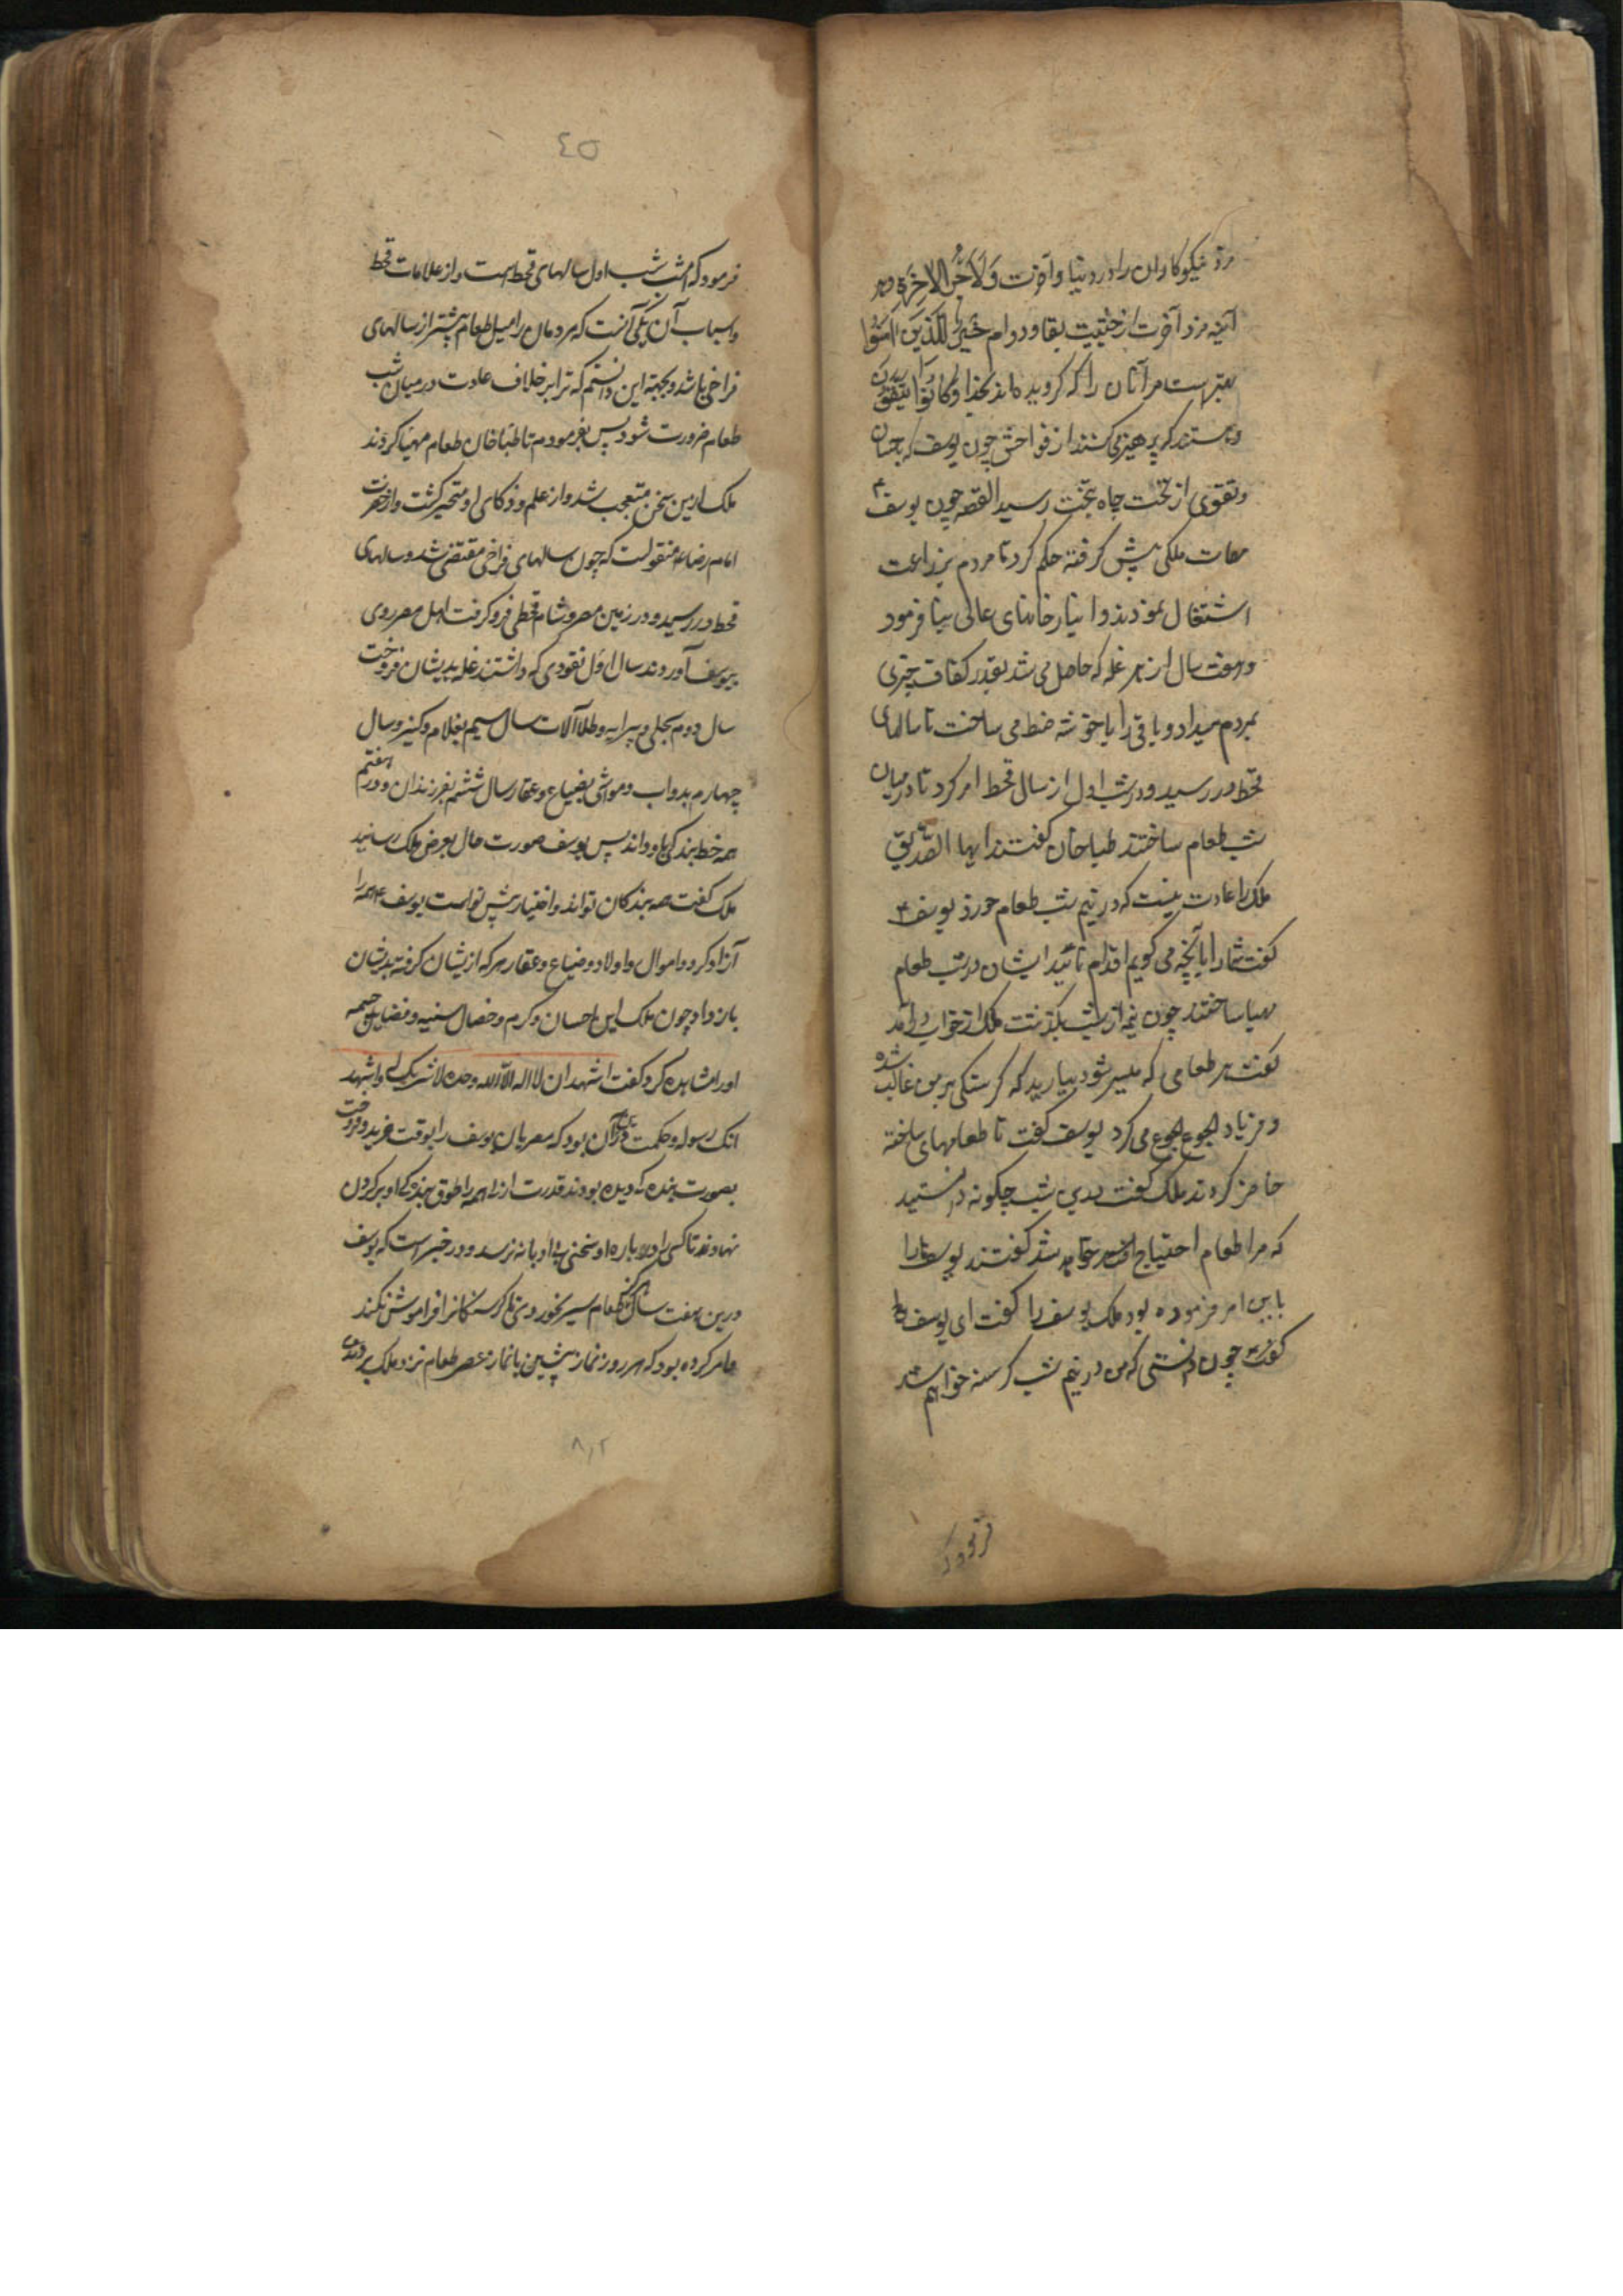 مزد نیکوکاران را در دنیا و آخرت وَلَاَجْرُ الْاٰخِرَةِ و هر
آینه مزد آخرت از حیثیت بقا و دوام خَیْرٌ لِلَّذِینَ اٰمَنُوا
بهتر است مر آنان را که گرویده‌اند بخدا وَکَانُوا یَتَّقُونَ
و هستند که پرهیز می کنند از فواحش چون یوسف که باحسان
و تقوی از تخت چاه بتخت رسید القصه چون یوسف ع
مهمات ملکی پیش گرفته حکم کرد تا مردم بزراعت
اشتغال نمودند و انبار خانهای عالی بنا فرمود
و هفت سال از هر غله که حاصل می شد بقدر کفاف چیزی
بمردم میداد و باقی را با خوشه ضبط می ساخت تا سالهای
قحط در رسید و در شب اول از سال قحط امر کرد تا در میان
شب طعام ساختند طباخان گفتند ایها الصدیق
ملک را عادت نیست که در نیم شب طعام خورد یوسف ع
گفت شما را بآنچه می گویم اقدام نمائید ایشان در شب طعام
مهیا ساختند چون نیمه از شب بگذشت ملک از خواب درآمد
گفت هر طعامی که میسر شود بیارید که گرسنگی بر من غالب شده
و فریاد الجوع الجوع می کرد یوسف گفت تا طعامهای ساخته
حاضر کردند ملک گفت درین شب چگونه دانستید
که مرا طعام احتیاج خواهد شد گفتند یوسف ما را
باین امر فرموده بود ملک یوسف را گفت ای یوسف
گفت چون دانستی که من در نیم شب گرسنه خواهم شد
فرمود که
٤٥
فرمود که امشب شب اول سالهای قحط است و از علامات قحط
و اسباب آن یکی آنست که مردمان را میل طعام بیشتر از سالهای
فراخی باشد و بجهة این دانستم که ترا بر خلاف عادت در میان شب
طعام ضرورت شود پس بفرمودم تا طباخان طعام مهیا کردند
ملک ازین سخن متعجب شد و از علم و ذکای او متحیر گشت و از حضرت
امام رضا ع منقولست که چون سالهای فراخی مقتضی شد و سالهای
قحط در رسید و در زمین مصر و شام قحطی فرو گرفت اهل مصر روی
بیوسف آوردند سال اول نقودی که داشتند غله بدیشان فروخت
سال دوم بحلی و پیرایه و طلا آلات سال سیم بغلام و کنیز و سال
چهارم بدواب و مواشی بضیاع و عقار سال ششم بفرزندان و در هفتم
همه خط بندگی باو دادند پس یوسف صورت حال بعرض ملک رسانید
ملک گفت همه بندگان تواند و اختیار پیش تو است یوسف ع همه را
آزاد کرد و اموال و اولاد و ضیاع و عقار هر که از یشان گرفته بدیشان
باز داد چون ملک این احسان و کرم و خصال سنیه و فضایل جمیمه
او را مشاهده کرد گفت اشهد ان لا اله الا الله وحده لا شریک له و اشهد
انک رسوله و حکمت در آن بود که مصریان یوسف را بوقت خرید و فروخت
بصورت بنده که دیده بودند قدرت ازلی همه را طوق بندگی او بر گردن
نهادند تا کسی را در باره او سخنی بی ادبانه نرسد و در خبر است که یوسف
درین هفت سال طعام سیر نخوردی تا گرسنگانرا فراموش نکند
و امر کرده بود که هر روز نماز پیشین یا نماز عصر طعام نزد ملک بردندی
۸۰۲